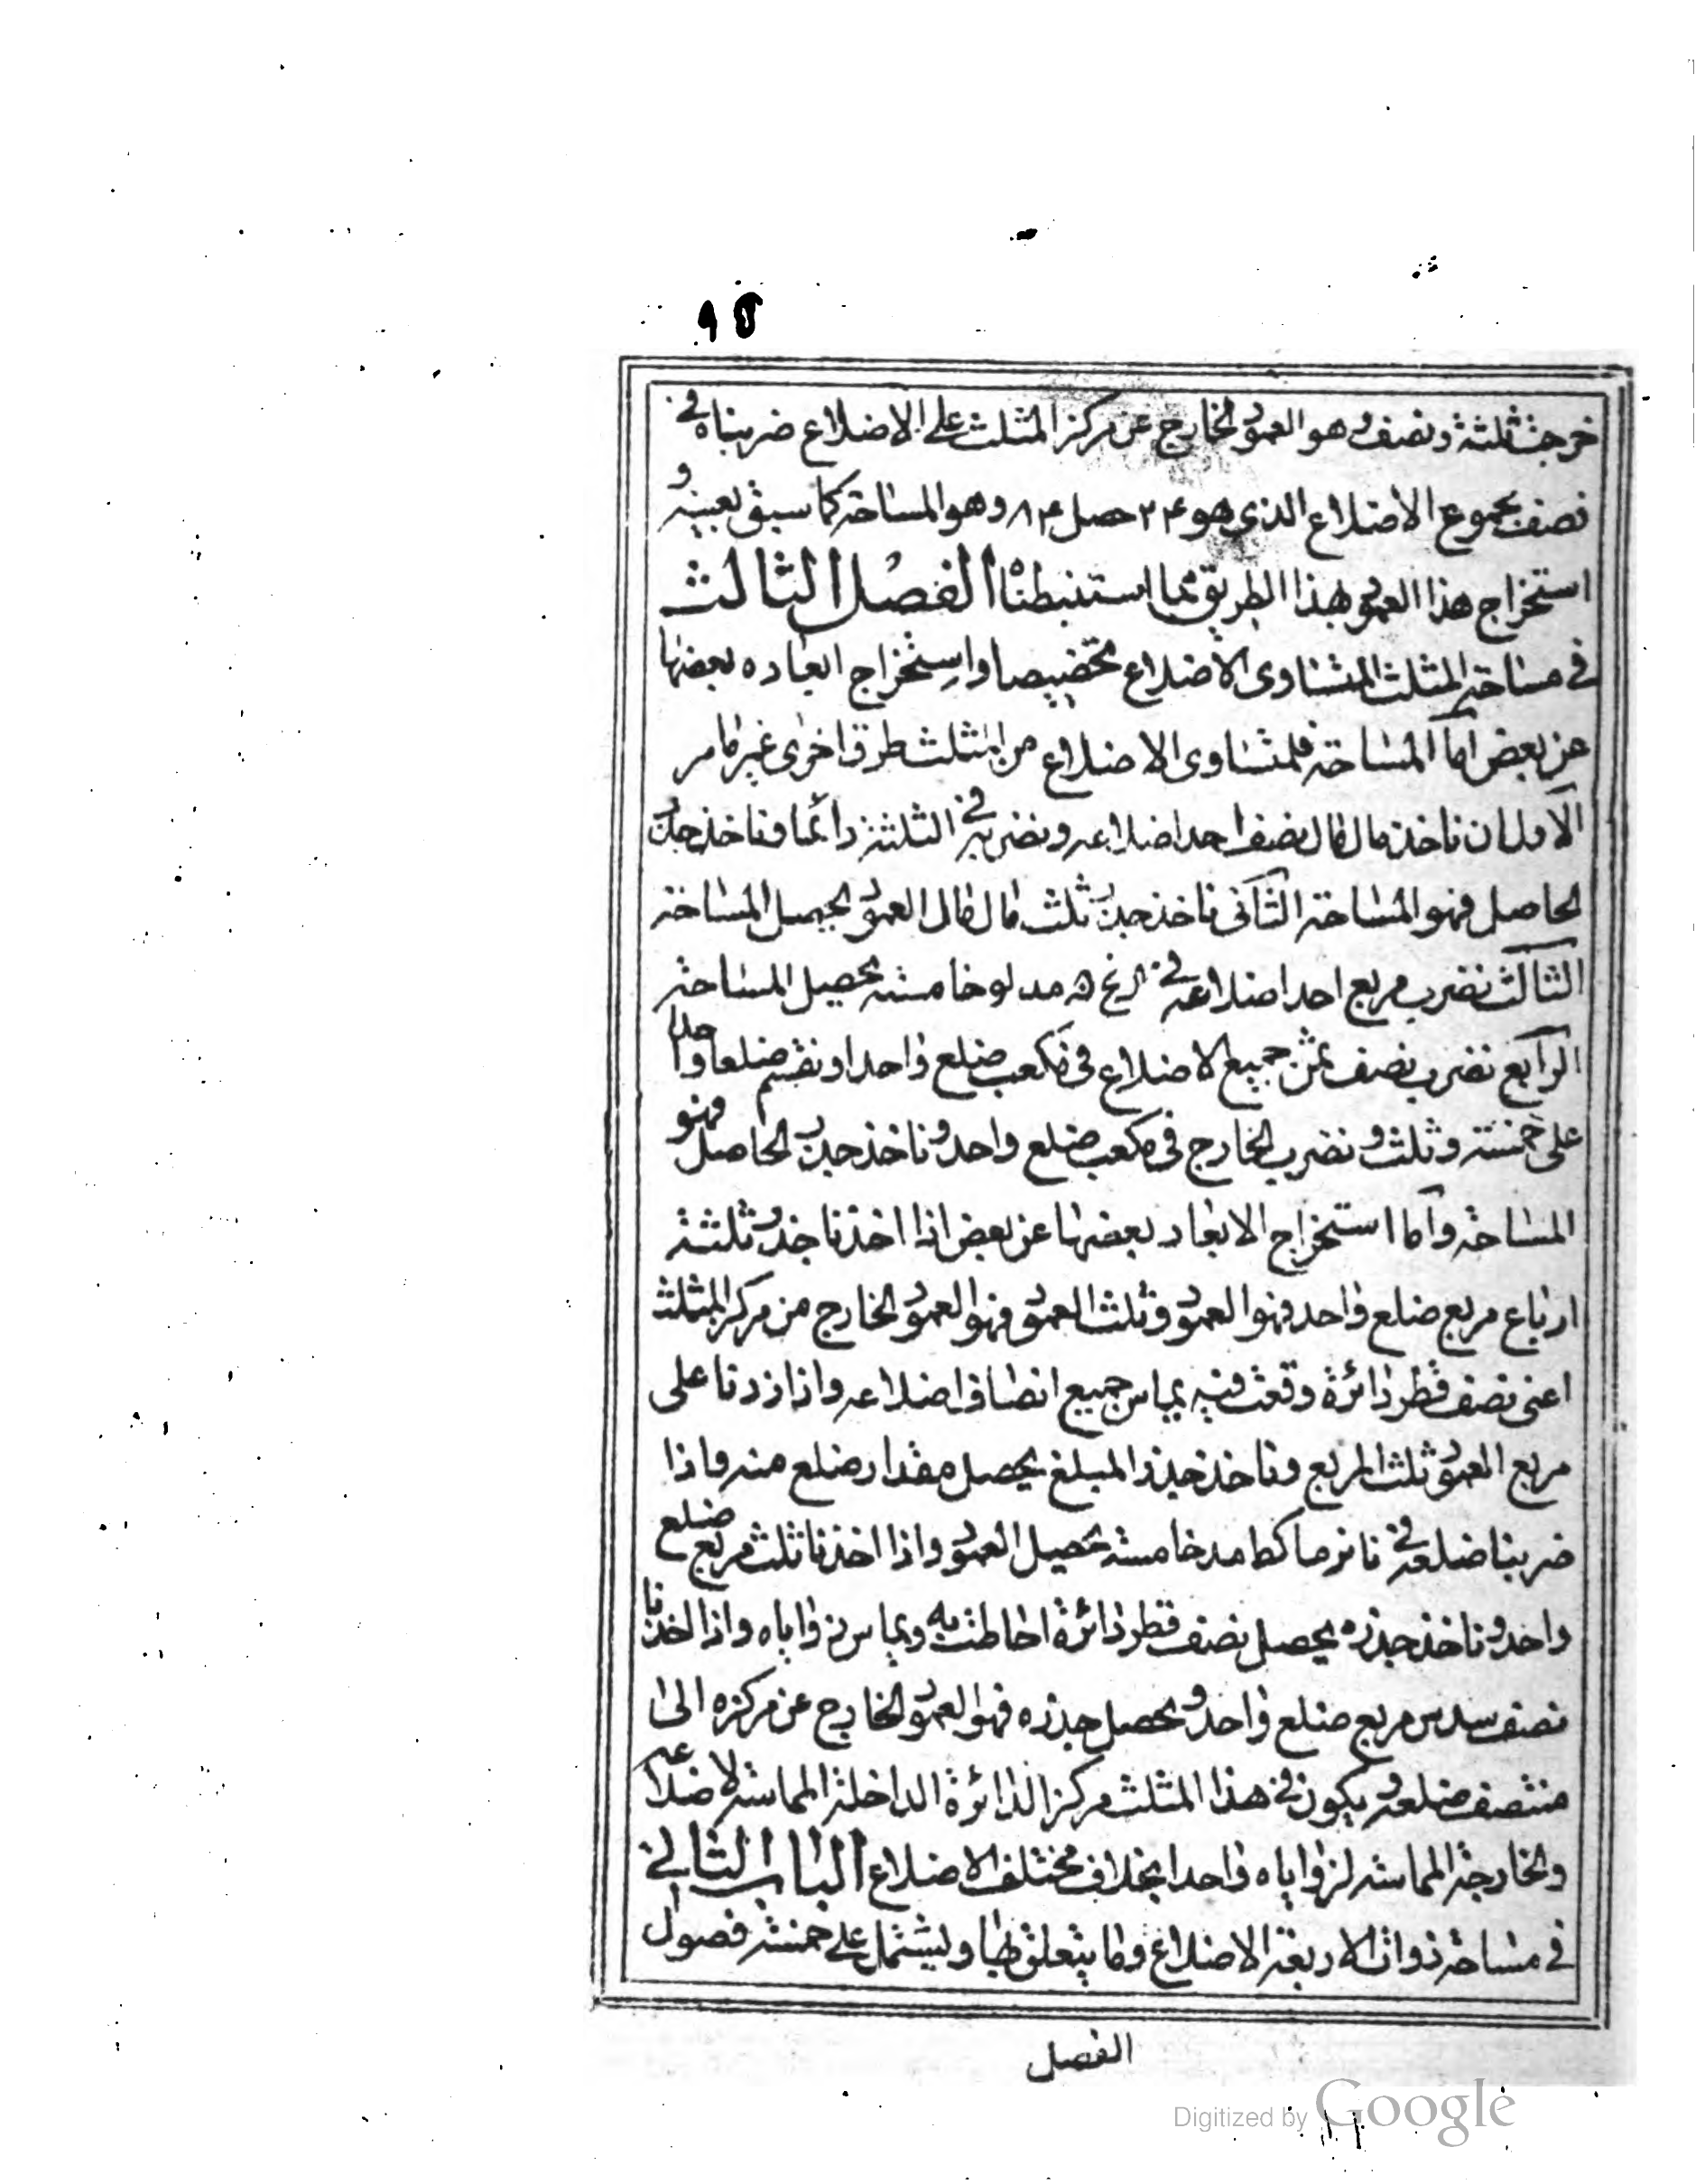 ٩٥
خرجت ثلثة ونصف وهو العمود الخارج عن مركز المثلث على الاضلاع ضربناه في
نصف مجموع الاضلاع الذي هو ٢٤ حصل ٨٤ وهو المساحة كما سبق بعينه و
استخراج هذا العمود بهذا الطريق مما استنبطناه الفصل الثالث
في مساحة المثلث المتساوي الاضلاع تخصيصا واستخراج ابعاده بعضها
عن بعض اما المساحة فلمتساوي الاضلاع من المثلث طرق اخرى غير ما مر
الاول ان ناخذ مال مال نصف احد اضلاعه ونضربه في الثلثة دائما وناخذ جذر
الحاصل فهو المساحة الثاني ناخذ جذر ثلث مال مال العمود ليحصل المساحة
الثالث نضرب مربع احد اضلاعه في مد لو خامسة يحصل المساحة
الرابع نضرب نصف ثمن جميع الاضلاع في مكعب ضلع واحد او نقسم ضلعا واحدا
على خمسة وثلث ونضرب الخارج في مكعب ضلع واحد وناخذ جذر الحاصل فهو
المساحة واما استخراج الابعاد بعضها عن بعض اذا اخذنا جذر ثلثة
ارباع مربع ضلع واحد فهو العمود وثلث العمود فهو العمود الخارج من مركز المثلث
اعني نصف قطر دائرة وقعت فيه يماس جميع انصاف اضلاعه واذا زدنا على
مربع العمود ثلث المربع وناخذ جذر المبلغ يحصل مقدار ضلع منه واذا
ضربنا ضلعه في كط مد خامسة يحصل العمود واذا اخذنا ثلث مربع ضلع
واحد وناخذ جذره يحصل نصف قطر دائرة احاطت به ويماس زواياه واذا اخذنا
نصف سدس مربع ضلع واحد ويحصل جذره فهو العمود الخارج عن مركزه الى
منتصف ضلعه ويكون في هذا المثلث مركز الدائرة الداخلة المماسة لاضلاعه
والخارجة المماسة لزواياه واحدا بخلاف مختلف الاضلاع الباب الثاني
في مساحة ذوات الاربعة الاضلاع وما يتعلق بها ويشتمل على خمسة فصول
الفصل
Digitized by Google